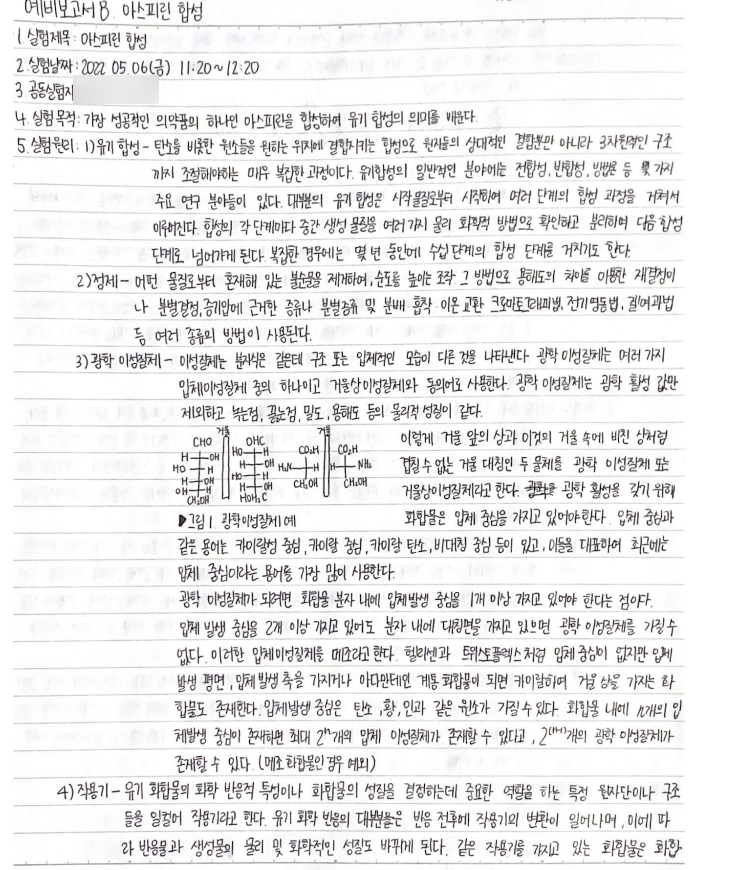 예비보고서 B. 아스피린 합성
1. 실험제목 : 아스피린 합성
2. 실험날짜 : 2022. 05. 06(금) 11:20~12:20
3. 공동실험자
4. 실험목적 : 가장 성공적인 의약품의 하나인 아스피린을 합성하여 유기 합성의 의미를 배운다.
5. 실험원리 : 1) 유기 합성 - 탄소를 비롯한 원소들을 원하는 위치에 결합시키는 합성으로 원자들의 상대적인 결합뿐만 아니라 3차원적인 구조
까지 조절해야하는 매우 복잡한 과정이다. 유기합성의 일반적인 분야에는 전합성, 반합성, 방법론 등 몇 가지
주요 연구 분야들이 있다. 대부분의 유기 합성은 시작물질로부터 시작하여 여러 단계의 합성 과정을 거쳐서
이루어진다. 합성의 각 단계마다 중간 생성 물질을 여러가지 물리 화학적 방법으로 확인하고 분리하여 다음 합성
단계로 넘어가게 된다. 복잡한 경우에는 몇 년 동안에 수십 단계의 합성 단계를 거치기도 한다.
2) 정제 - 어떤 물질로부터 혼재해 있는 불순물을 제거하여, 순도를 높이는 조작 그 방법으로 용해도의 차이를 이용한 재결정이
나 분별결정, 증기압에 근거한 증류나 분별증류 및 분배 흡착·이온 교환 크로마토그래피법, 전기영동법, 겔여과법
등 여러 종류의 방법이 사용된다.
3) 광학 이성질체 - 이성질체는 분자식은 같은데 구조 또는 입체적인 모습이 다른 것을 나타낸다 광학 이성질체는 여러 가지
입체이성질체 중의 하나이고 거울상이성질체와 동의어로 사용한다. 광학 이성질체는 광학 활성 값만
제외하고 녹는점, 끓는점, 밀도, 용해도 등의 물리적 성질이 같다.
거울 거울
CHO OHC CO₂H CO₂H
H OH HO H
HO H H OH H₂N H H NH₂
H OH HO H CH₂OH CH₂OH
OH H H OH
CH₂OH HOH₂C
이렇게 거울 앞의 상과 이것의 거울 속에 비친 상처럼
겹칠 수 없는 거울 대칭인 두 물체를 광학 이성질체 또는
거울상이성질체라고 한다. 광학 활성을 갖기 위해
▶그림 1. 광학이성질체 예
화합물은 입체 중심을 가지고 있어야한다. 입체 중심과
같은 용어는 카이랄성 중심, 카이랄 중심, 카이랄 탄소, 비대칭 중심 등이 있고, 이들을 대표하여 최근에는
입체 중심이라는 용어를 가장 많이 사용한다.
광학 이성질체가 되려면 화합물 분자 내에 입체발생 중심을 1개 이상 가지고 있어야 한다는 점이다.
입체 발생 중심을 2개 이상 가지고 있어도 분자 내에 대칭면을 가지고 있으면 광학 이성질체를 가질 수
없다. 이러한 입체이성질체를 메조라고 한다. 헬리센과 트위스토플렉스처럼 입체 중심이 없지만 입체
발생 평면, 입체발생 축을 가지거나 아다만테인 계통 화합물이 되면 카이랄하여 거울 상을 가지는 화
합물도 존재한다. 입체발생 중심은 탄소, 황, 인과 같은 원소가 가질 수 있다. 화합물 내에 n개의 입
체발생 중심이 존재하면 최대 2ⁿ개의 입체 이성질체가 존재할 수 있다고, 2⁽ⁿ⁻¹⁾개의 광학 이성질체가
존재할 수 있다. (메조 화합물인 경우 예외)
4) 작용기 - 유기 화합물의 화학 반응적 특성이나 화합물의 성질을 결정하는데 중요한 역할을 하는 특정 원자단이나 구조
들을 일컬어 작용기라고 한다. 유기 화학 반응의 대부분은 반응 전후에 작용기의 변환이 일어나며, 이에 따
라 반응물과 생성물의 물리 및 화학적인 성질도 바뀌게 된다. 같은 작용기를 가지고 있는 화합물은 화합